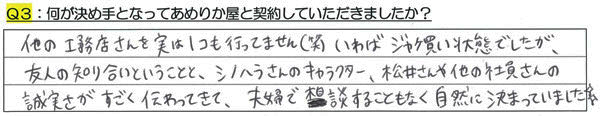 Q3：何が決め手となってあめりか屋と契約していただきましたか？
他の工務店さんを実は1つも行ってません(笑) いわばジャケ買い状態でしたが、
友人の知り合いということと、シノハラさんのキャラクター、松井さんや他の社員さんの
誠実さがすごく伝わってきて、夫婦で相談することもなく自然に決まっていました